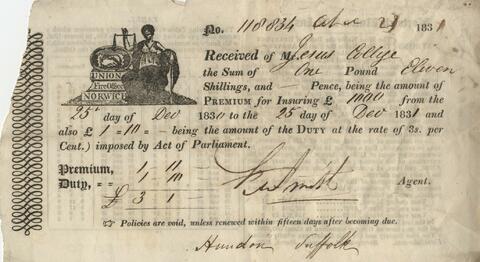 No. 118834 21 1831
UNION
Fire Office
NORWICH
Received of M Jesus College
the Sum of One Pound Eleven
Shillings, and Pence, being the amount of
PREMIUM for Insuring £ 1000 from the
25th day of Dec 1830 to the 25 day of Dec 1831 and
also £ 1 = 10 = - being the amount of the DUTY at the rate of 3s. per
Cent.) imposed by Act of Parliament.
Premium, 1 11
Duty, 1 10
£ 3 1
Agent.
☞ Policies are void, unless renewed within fifteen days after becoming due.
Hundon Suffolk